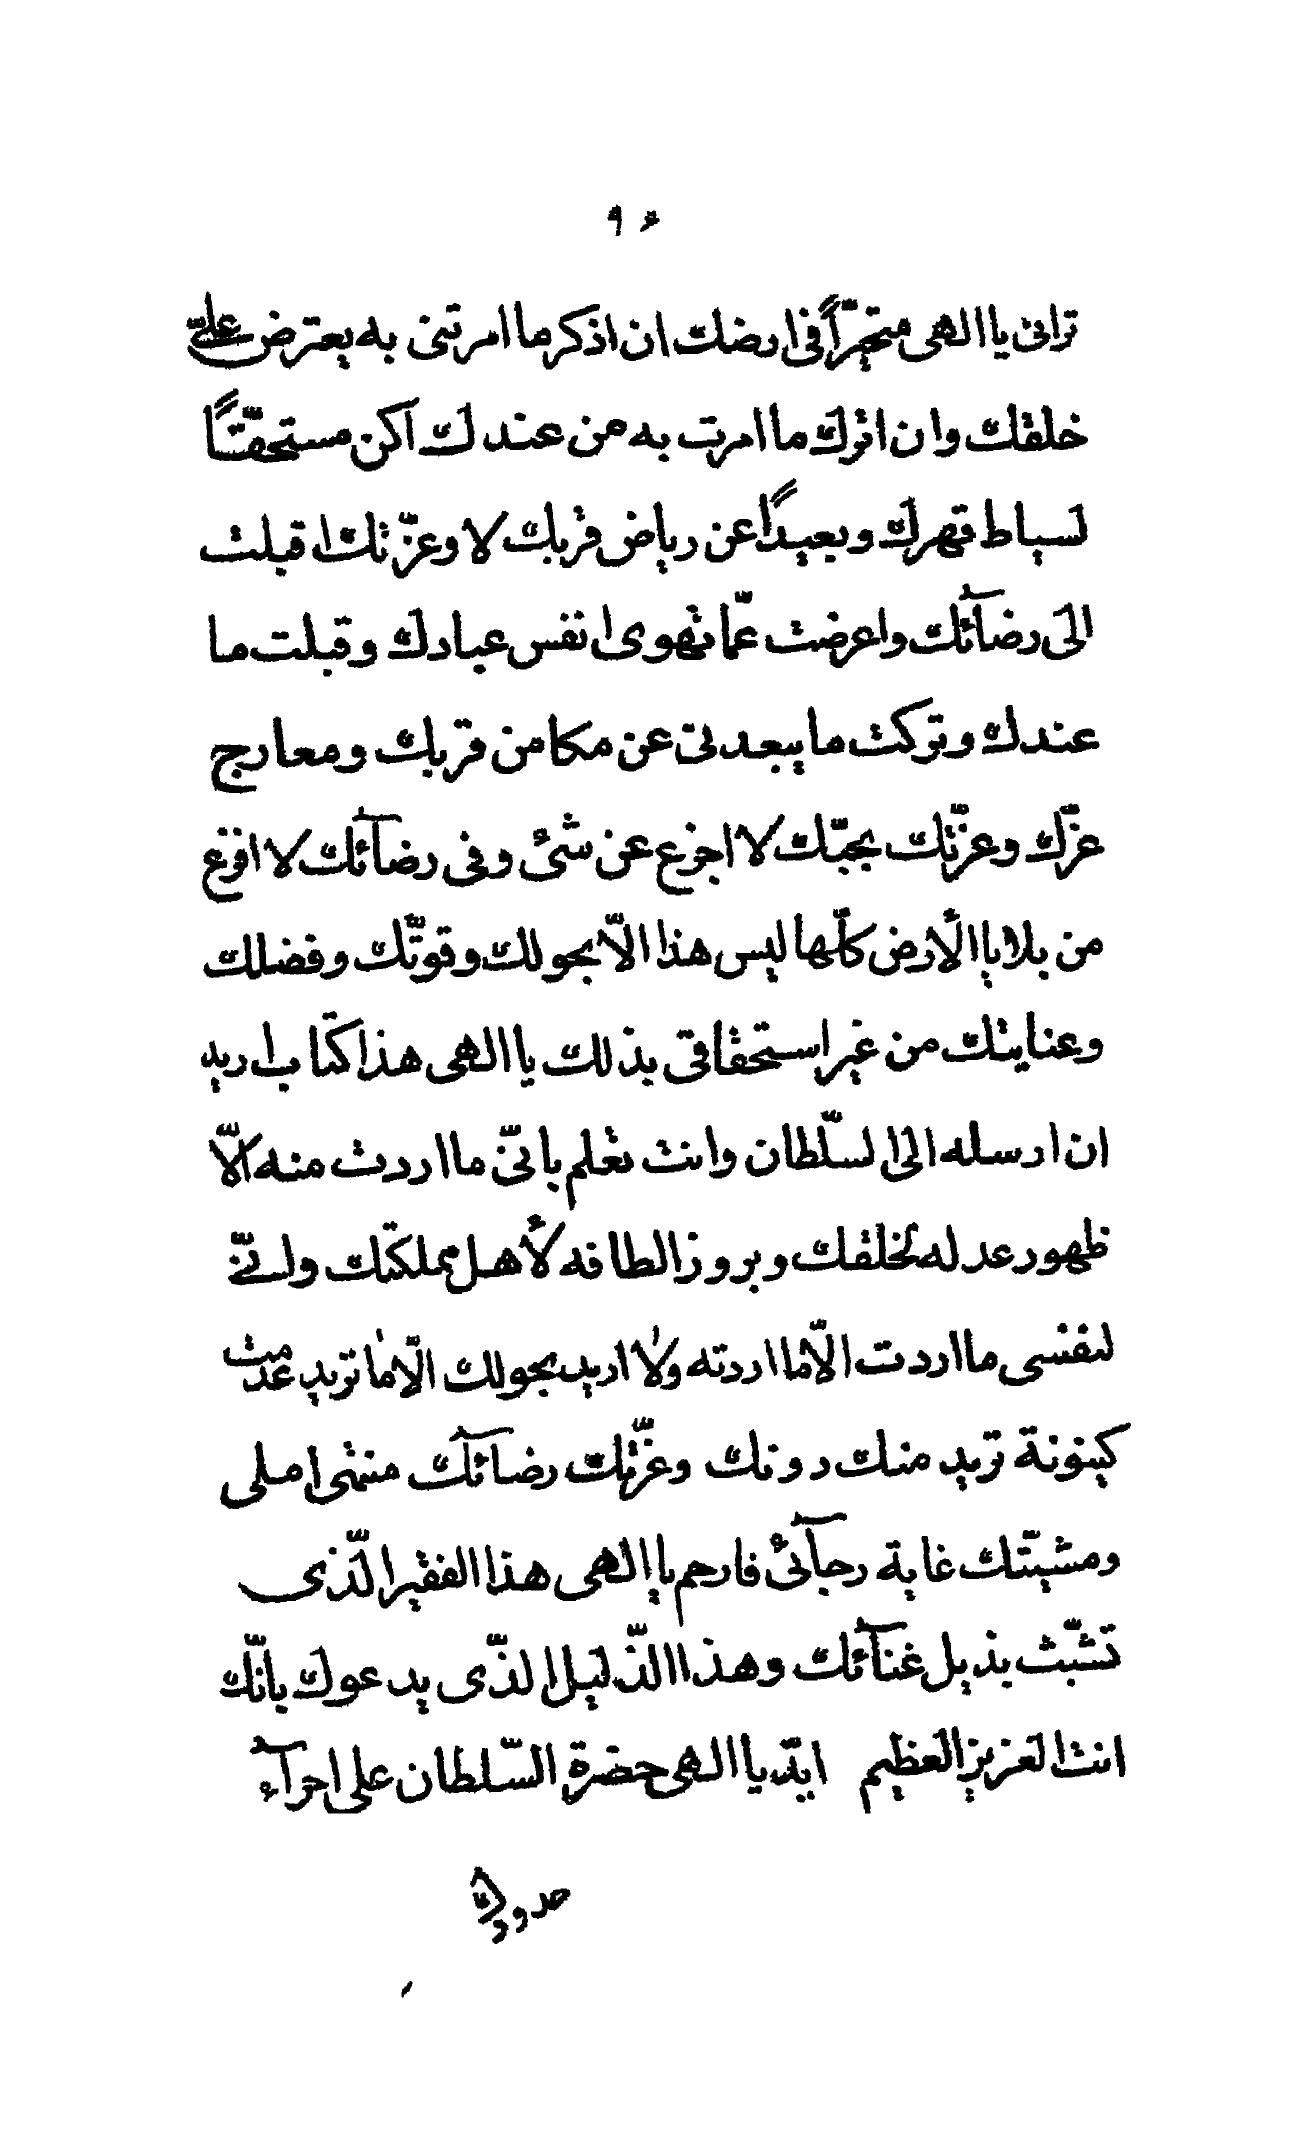 ٩٠
ترانی یا الهی متحیّراً فی ارضك ان اذكر ما امرتنی به یعترض علیّ
خلقك وان اترك ما امرت به من عندك اكن مستحقّاً
لسیاط قهرك وبعیداً عن ریاض قربك لا وعزّتك اقبلت
الی رضآئك واعرضت عمّا تهوی انفس عبادك وقبلت ما
عندك وتركت ما یبعدنی عن مكامن قربك ومعارج
عزّك وعزّتك بحبّك لا اجزع عن شیٔ وفی رضآئك لا افزع
من بلایا الأرض كلّها لیس هذا الّا بحولك وقوّتك وفضلك
وعنایتك من غیر استحقاقی بذلك یا الهی هذا كتاب ارید
ان ارسله الی السّلطان وانت تعلم بانّی ما اردت منه الّا
ظهور عدله لخلقك وبروز الطافه لأهل مملكتك وانّی
لنفسی ما اردت الّا ما اردته ولا ارید بحولك الّا ما ترید عدمت
كینونة ترید منك دونك وعزّتك رضآئك منتهی املی
ومشیّتك غایة رجآئی فارحم یا الهی هذا الفقیر الّذی
تشبّث بذیل غنآئك وهذا الذّلیل الذّی یدعوك بانّك
انت العزیز العظیم ایّد یا الهی حضرة السّلطان علی اجرآء
حدودك